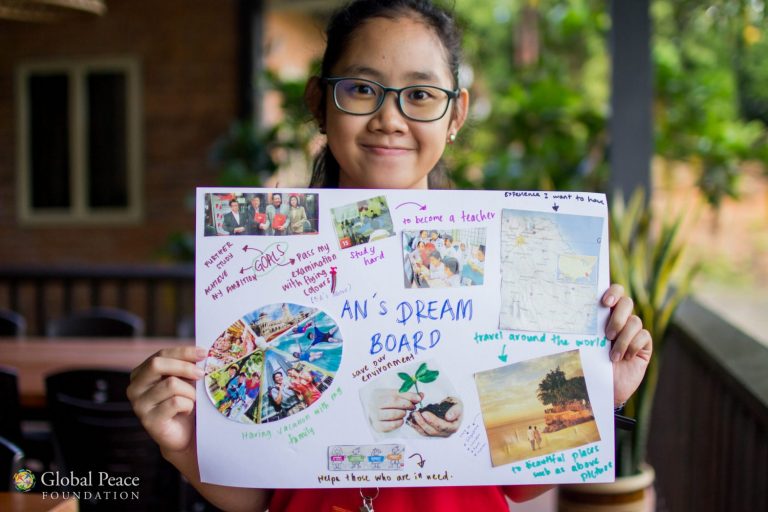 EXPERIENCE I want to have
to become a teacher
FURTHER STUDY
ACHIEVE MY AMBITION
GOALS
Pass my examination with flying colours
Study hard
AN'S DREAM BOARD
travel around the world
save our environment
Having vacation with my family
to beautiful places such as above picture
Helps those who are in need.
Global Peace
FOUNDATION